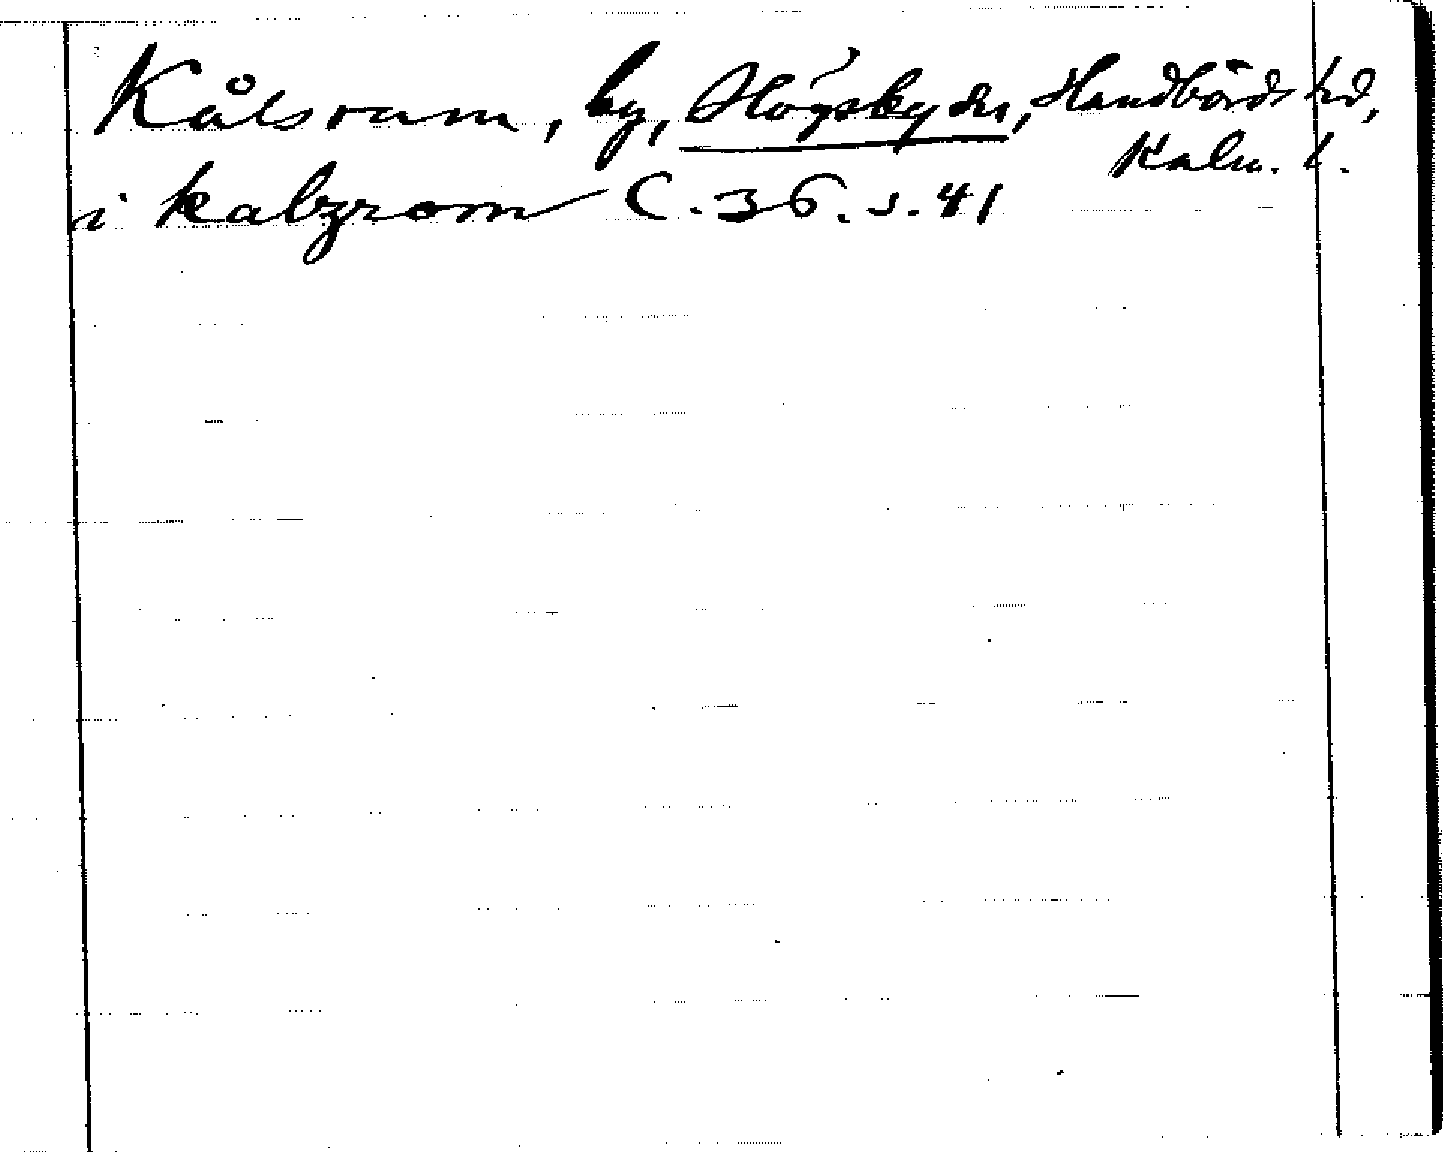 Kålsram, by, Högsby sn, Handbörds hd,
Kalm. l.
i kalzrom C. 36. s. 41